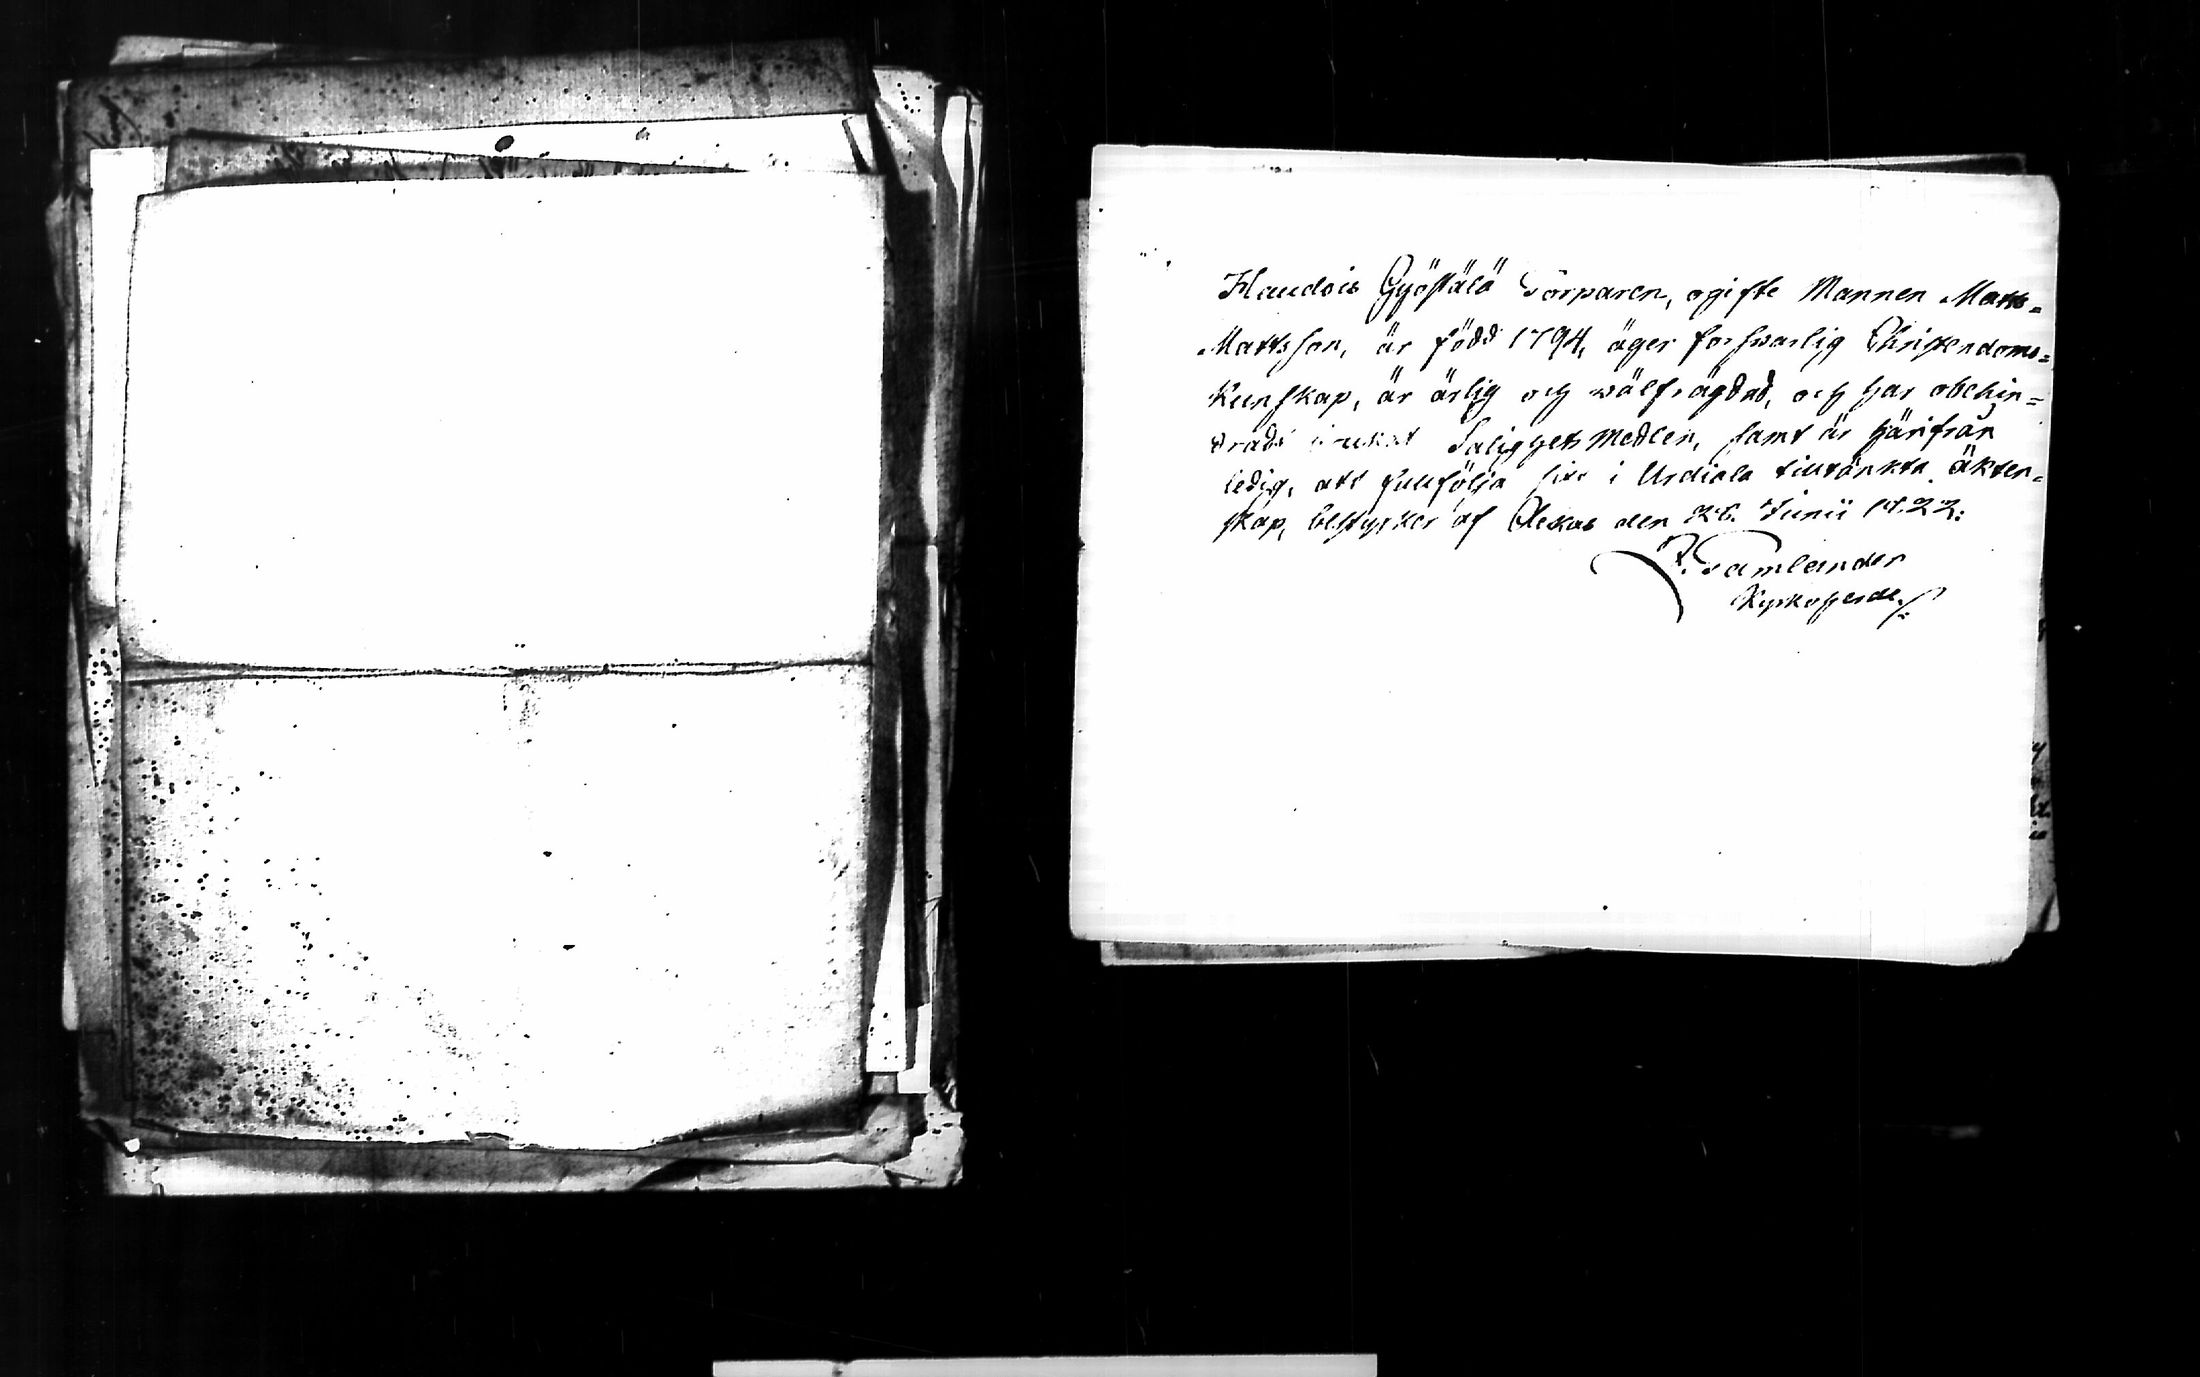 Haudois Gyöstälä Torparen, ogifte Mannen Matts
Mattsson, är född 1794, äger forswarlig Christendoms=
kunskap, är ärlig och wälfrägdad, och har obehin=
dradt brukat Salighets Medlen, samt är härifrån
ledig, att fullfölja sitt i Urdiala tilltänkta äkten=
skap, bestyrker af Akkas den 26. Junii 1822:
Tamlander
Kyrkoherde.